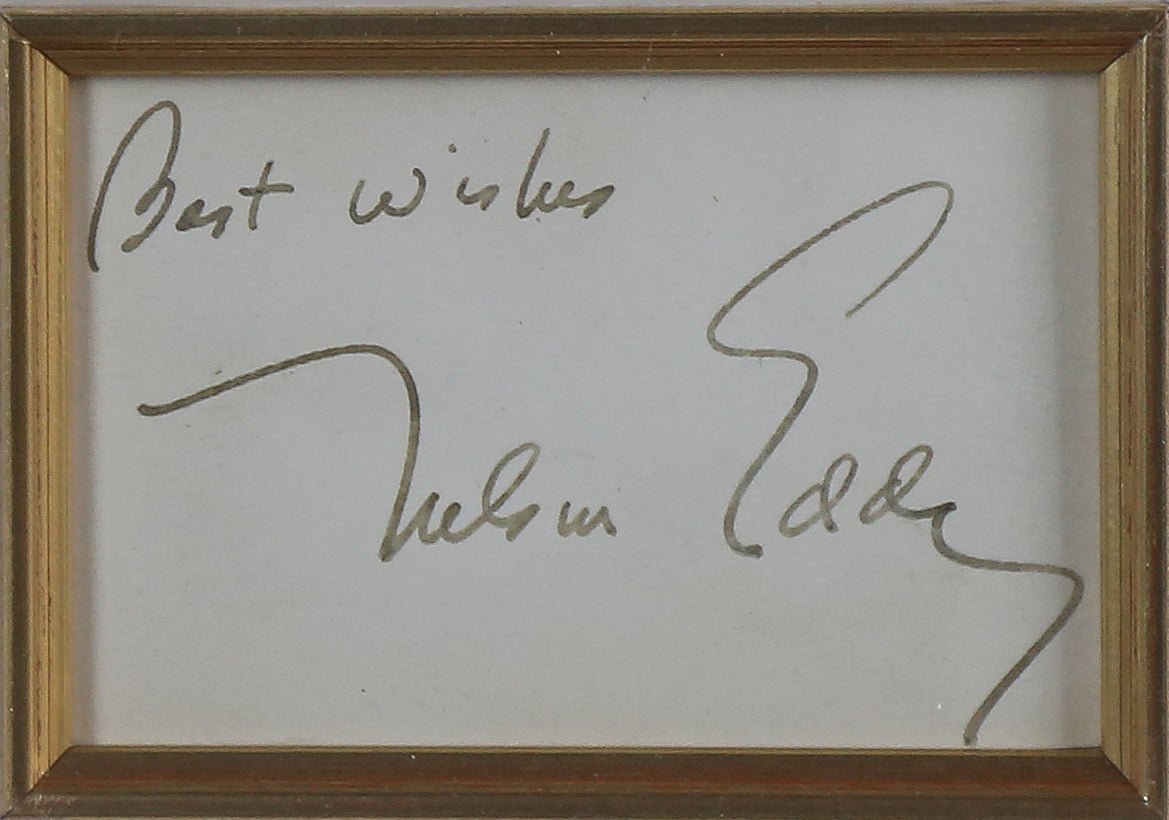 Best wishes
Nelson Eddy